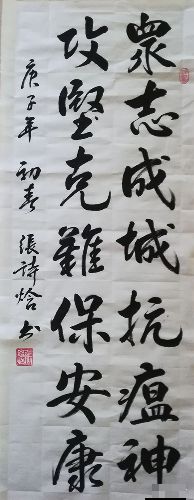 眾志成城抗瘟神
攻堅克難保安康
庚子年初春張詩焓书